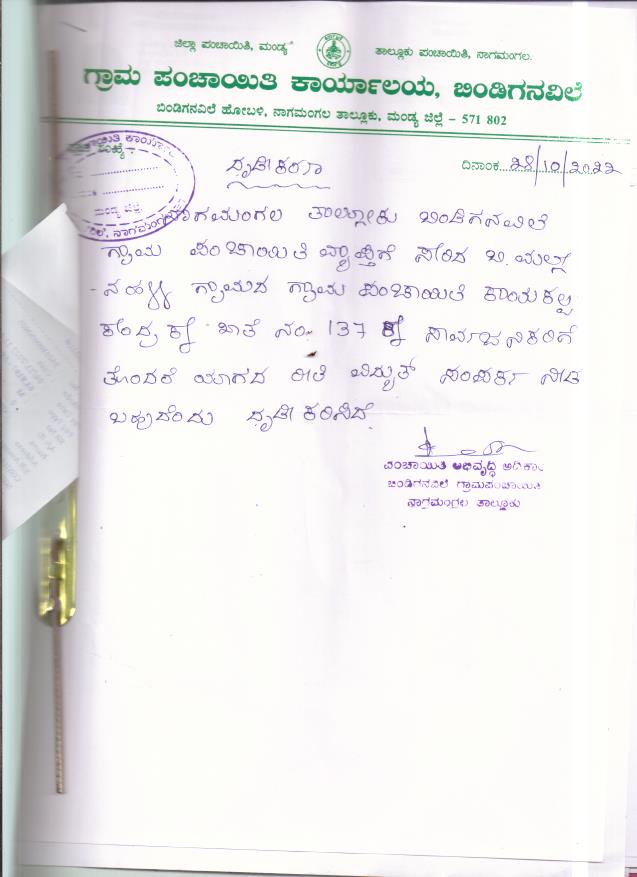 ಜಿಲ್ಲಾ ಪಂಚಾಯಿತಿ, ಮಂಡ್ಯ ತಾಲ್ಲೂಕು ಪಂಚಾಯಿತಿ, ನಾಗಮಂಗಲ.
ಗ್ರಾಮ ಪಂಚಾಯಿತಿ ಕಾರ್ಯಾಲಯ, ಬಿಂಡಿಗನವಿಲೆ
ಬಿಂಡಿಗನವಿಲೆ ಹೋಬಳಿ, ನಾಗಮಂಗಲ ತಾಲ್ಲೂಕು, ಮಂಡ್ಯ ಜಿಲ್ಲೆ - 571 802
ದೃಢೀಕರಣ ದಿನಾಂಕ 28/10/2022
ನಾಗಮಂಗಲ ತಾಲ್ಲೂಕು ಬಿಂಡಿಗನವಿಲೆ
ಗ್ರಾಮ ಪಂಚಾಯಿತಿ ವ್ಯಾಪ್ತಿಗೆ ಸೇರಿದ ಬಿ.ಮಲ್ಲೇ
ನಹಳ್ಳಿ ಗ್ರಾಮದ ಗ್ರಾಮ ಪಂಚಾಯಿತಿ ಕಾಯಕಲ್ಪ
ಕೇಂದ್ರಕ್ಕೆ ಖಾತೆ ನಂ 137 ಕ್ಕೆ ಸಾರ್ವಜನಿಕರಿಗೆ
ತೊಂದರೆ ಯಾಗದ ರೀತಿ ವಿದ್ಯುತ್ ಸಂಪರ್ಕ ನೀಡ
ಬಹುದೆಂದು ದೃಢೀಕರಿಸಿದೆ.
ಪಂಚಾಯಿತಿ ಅಭಿವೃದ್ಧಿ ಅಧಿಕಾರಿ
ಬಿಂಡಿಗನವಿಲೆ ಗ್ರಾಮಪಂಚಾಯಿತಿ
ನಾಗಮಂಗಲ ತಾಲ್ಲೂಕು